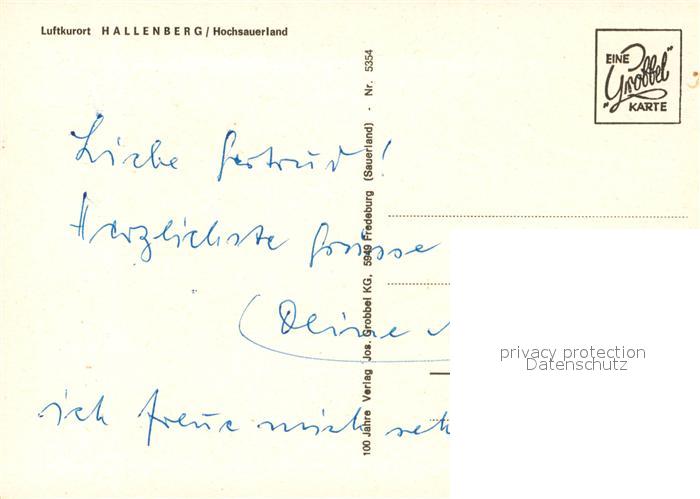 Luftkurort HALLENBERG / Hochsauerland
EINE
"Grobbel"
KARTE
100 Jahre Verlag Jos. Grobbel KG, 5949 Fredeburg (Sauerland) - Nr. 5354
Liebe Gertrud!
Herzlichste Grüsse
(Deine
ich freue mich seh
privacy protection
Datenschutz